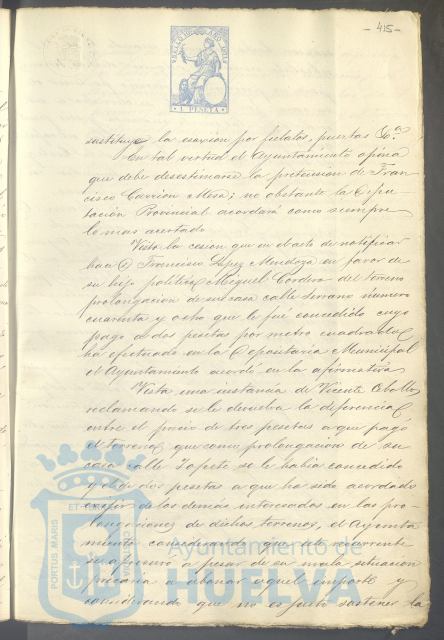 -415-
1 PESETA
sustituye la exacción por fielatos, puertas &.ª
En tal virtud el Ayuntamiento opina
que debe desestimarse la pretension de Fran-
cisco Carrión Mora; no obstante la Dipu-
tación Provincial acordará como siempre
lo mas acertado
Vista la cesión que en el acto de notificar
hace D. Francisco Lopez Mendoza en favor de
su hijo político Miguel Cordero del terreno
prolongación de su casa calle Serrano número
cuarenta y ocho que le fué concedido cuyo
pago a dos pesetas por metro cuadrado
ha efectuado en la Depositaria Municipal
el Ayuntamiento acordó en la afirmativa
Vista una instancia de Vicente Ceballos
reclamando se le devuelva la diferencia
entre el precio de tres pesetas a que pagó
el terreno que como prolongación de su
casa calle se le habia concedido
y el de dos pesetas a que ha sido acordado
exijir de los demás interesados en las pro-
longaciones de dichos terrenos, el Ayunta-
miento considerando que el recurrente
se apresuro a pesar de su mala situación
precaria a abonar aquel importe y
considerando que no es justo sostener la
PORTUS MARIS
ET
Ayuntamiento de
HUELVA